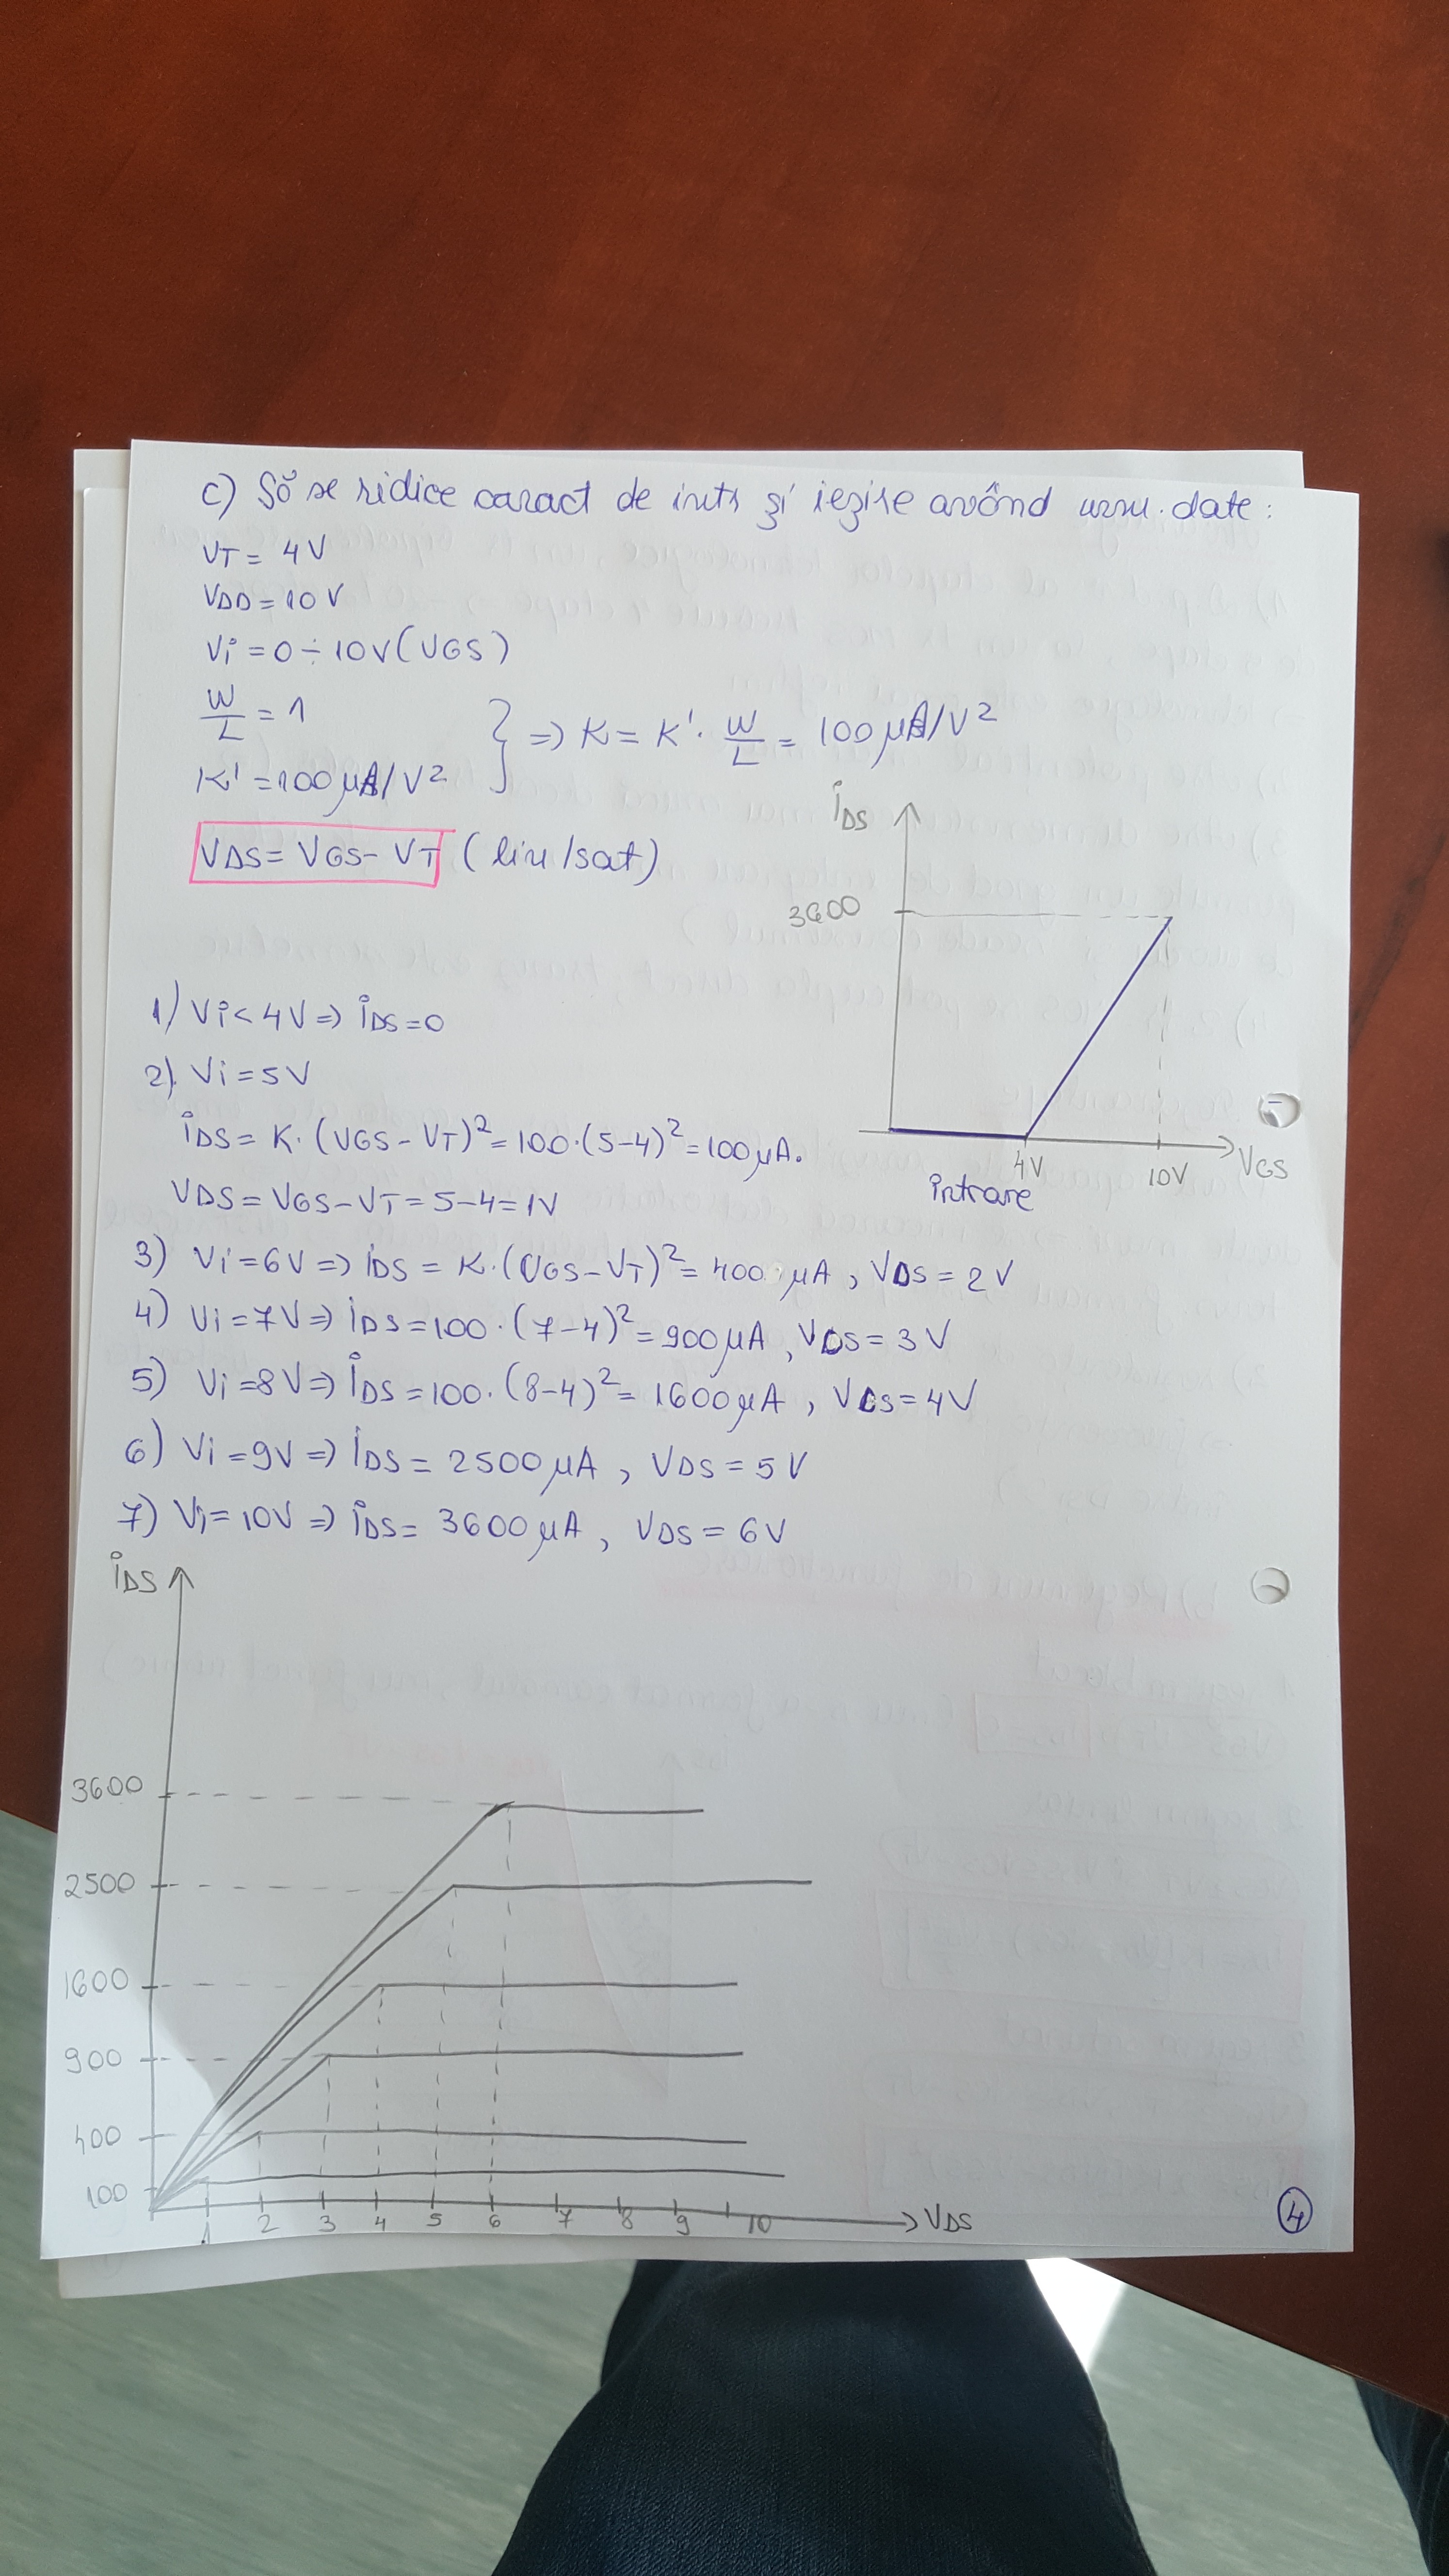 c) Să se ridice caract de intr și ieșire având urm. date:
VT = 4V
VDD = 10V
Vi = 0 ÷ 10V (VGS)
W/L = 1
K' = 100 μA/V²
} => K = K' · W/L = 100 μA/V²
VDS = VGS - VT (lin/sat)
iDS
3600
4V
10V
VGS
intrare
1) Vi < 4V => iDS = 0
2) Vi = 5V
iDS = K · (VGS - VT)² = 100 · (5-4)² = 100 μA.
VDS = VGS - VT = 5-4 = 1V
3) Vi = 6V => iDS = K · (VGS - VT)² = 400 μA, VDS = 2V
4) Vi = 7V => iDS = 100 · (7-4)² = 900 μA, VDS = 3V
5) Vi = 8V => iDS = 100 · (8-4)² = 1600 μA, VDS = 4V
6) Vi = 9V => iDS = 2500 μA, VDS = 5V
7) Vi = 10V => iDS = 3600 μA, VDS = 6V
iDS
3600
2500
1600
900
400
100
1 2 3 4 5 6 7 8 9 10 VDS
4